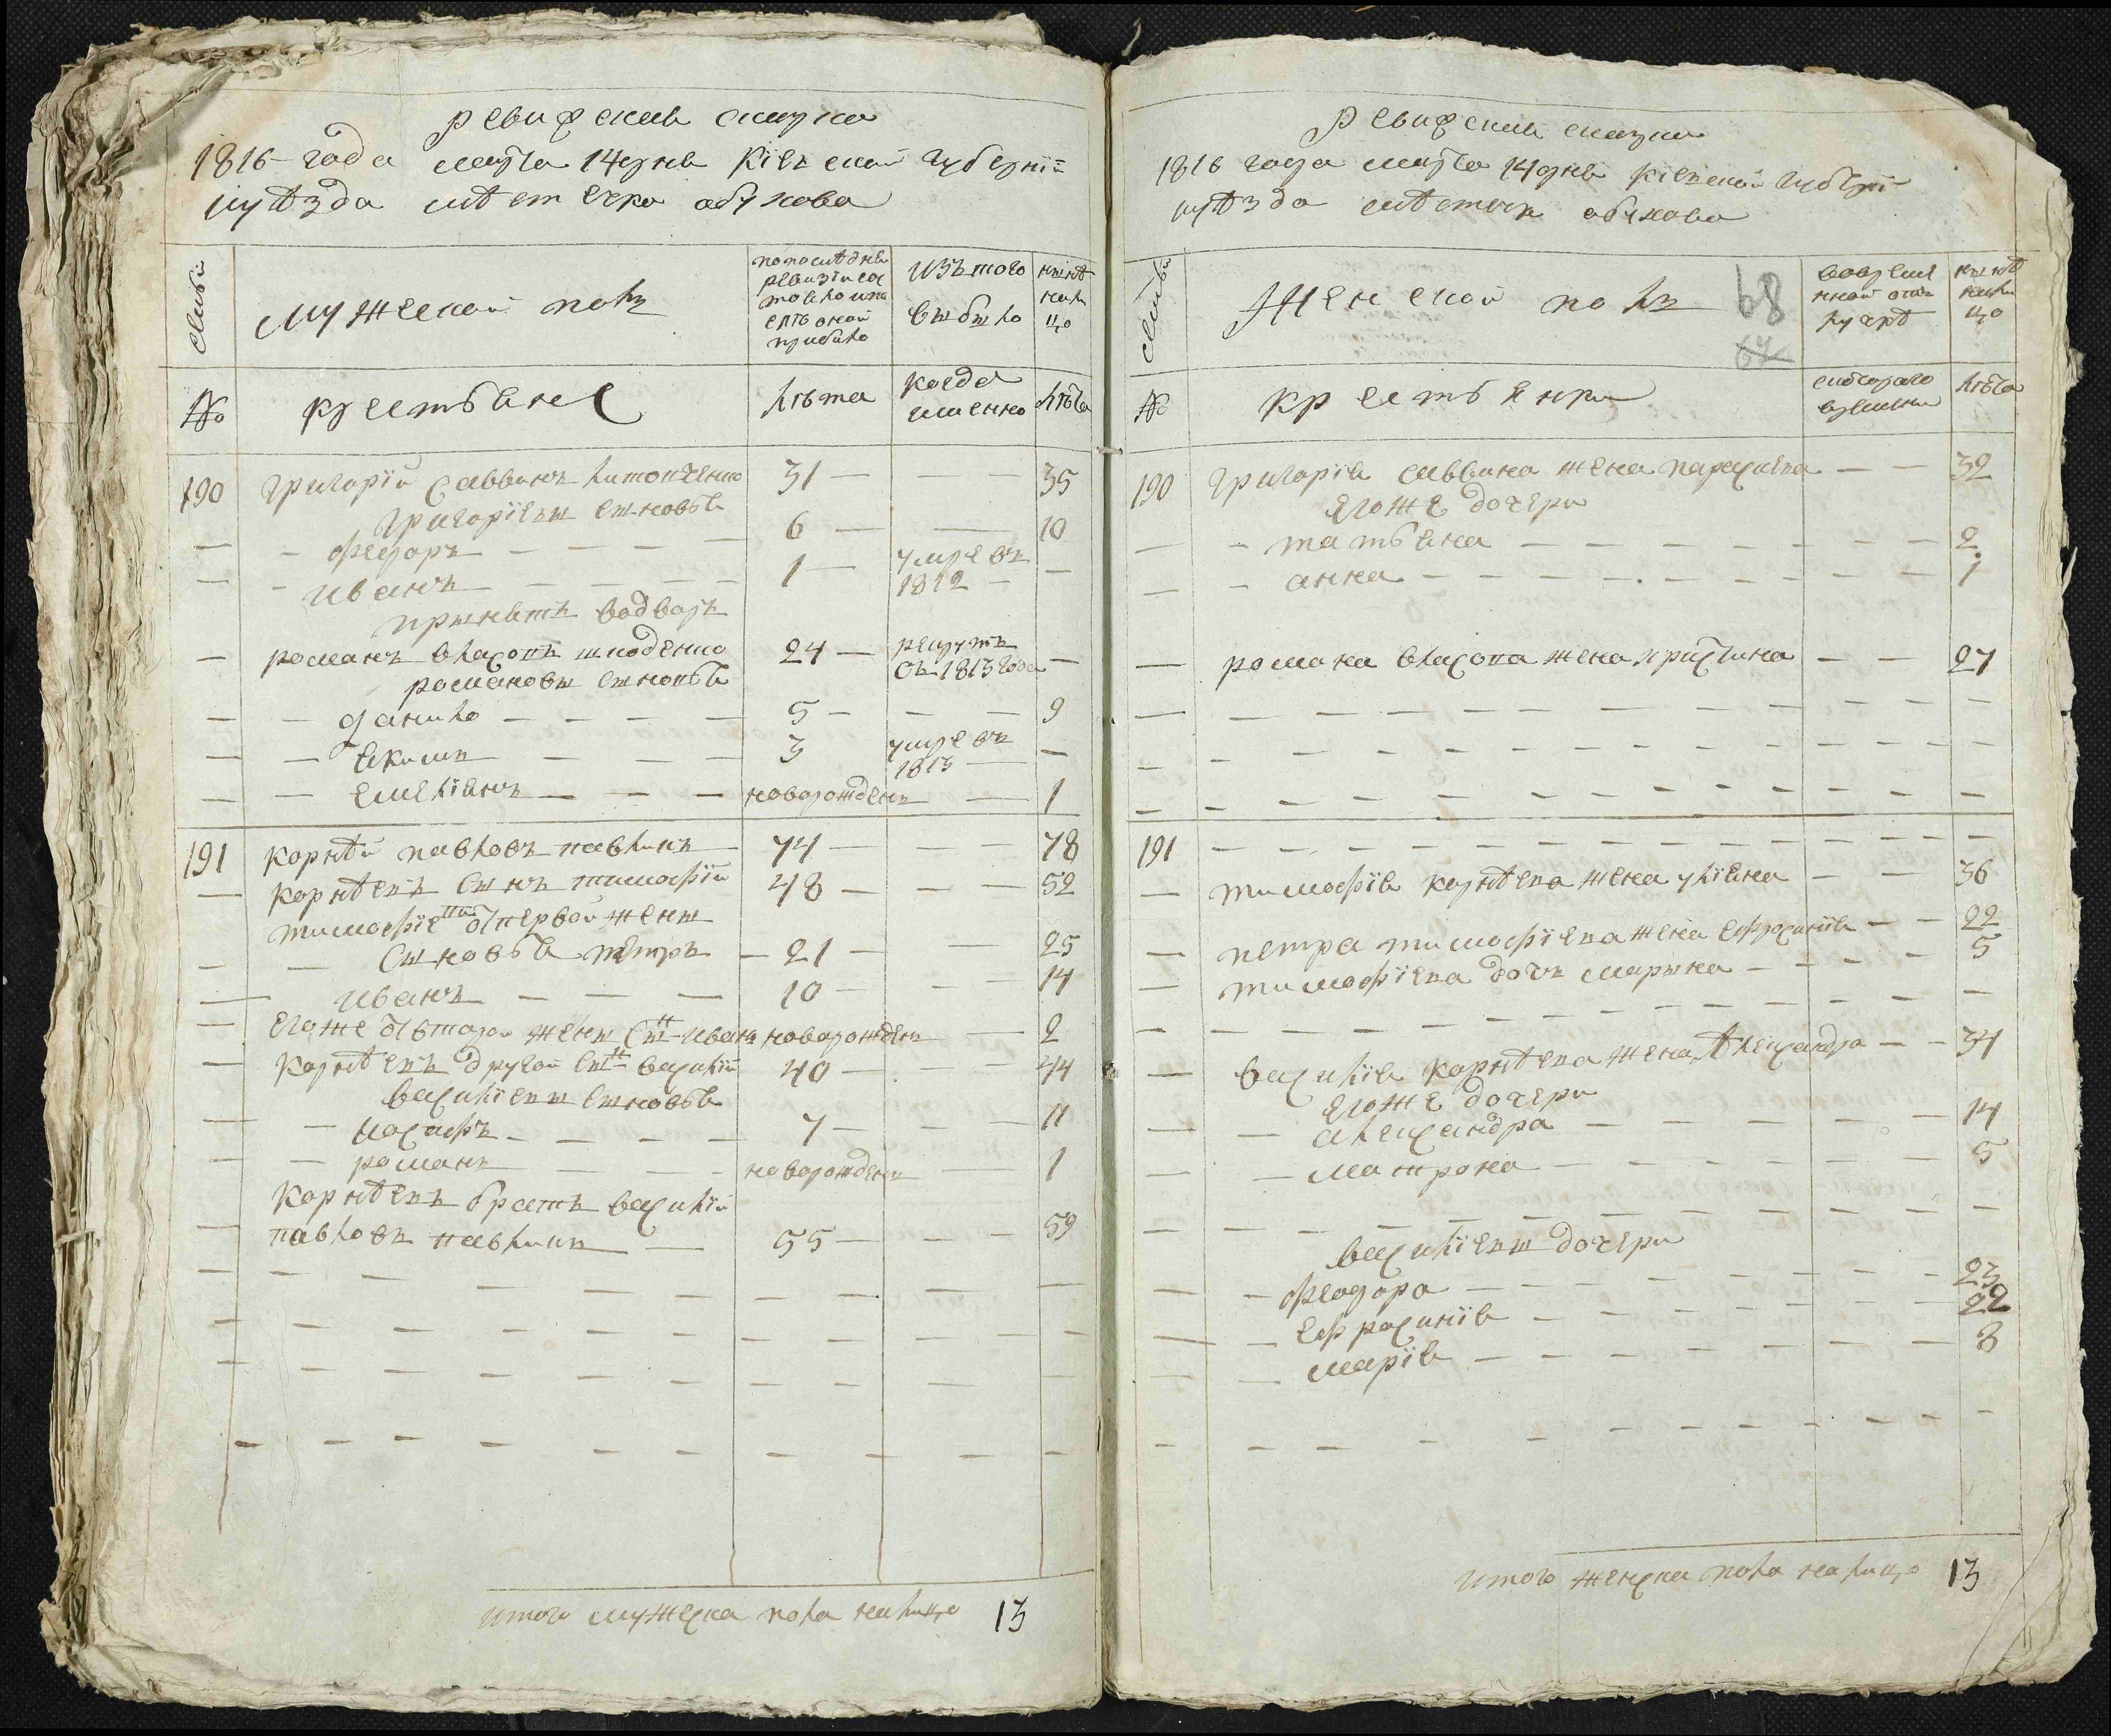 ревижская сказка
1816 года марта 14 дня Кіевской губерній
и уѣзда мѣстечка обухова
семьи
мужеской полъ
по последней
ревизіи сос
тояло и по
слѣ оной
прибыло
изъ того
выбыло
нынѣ
нали
цо
№
крестьяне
лѣта
когда
именно
лѣта
190 григорій саввинъ 31 — — 35
григоріевы сыновья
— — федоръ — — — — 6 — — 10
— — иванъ — — — — 1 — умре въ 1812 — —
принятъ водворъ
— романъ власовъ 24 — рекрутъ съ 1813 года —
романовы сыновья
— — данило — — — — 5 — — — 9
— — якимъ — — — 3 умре въ 1813 — —
— — емеліянъ — — — новорожденъ — 1
191 корнѣй павловъ павликъ — 74 — — 78
— корнѣевъ сынъ тимофій 48 — — — 52
тимофіевы отпервой жены
— — сыновья петръ — 21 — — 25
— иванъ — — — 10 — — — 14
— егоже отвторой жены сынъ иванъ новорожденъ — 2
— корнѣевъ другой сынъ василій 40 — — — 44
василіевы сыновья
— — иосифъ — — — — 7 — — — 11
— — романъ — — — новорожденъ — 1
корнѣевъ братъ василій
— павловъ павликъ — 55 — — — 59
итого мужеска пола налицо 13
ревижская сказка
1816 года марта 14 дня кіевской губерні
и уѣзда мѣстечка обухова
семьи
женской полъ
68
67
вовремен
ной отлу
лучкѣ
нынѣ
нали
цо
№
крестьянки
съкотораго
времени
лѣта
190 григорія саввина жена параскева — — 32
егоже дочери
— — татьяна — — — — — — — — 2
— — анна — — — — — — — — 1
— романа власова жена христина — — 27
191 — — — — — — — — — — —
— тимофія корнѣева жена уліяна — — 36
— петра тимофіева жена ефросинія — — 22
— тимофіева дочь марина — — — — 5
— василія корнѣева жена александра — — 34
егоже дочери
— — александра — — — — — 14
— — матрона — — — — — 5
василіевы дочери
— — феодора — — — — — — 23
— — ефросинія — — — — — — 22
— — марія — — — — — — 8
итого женска пола налицо 13